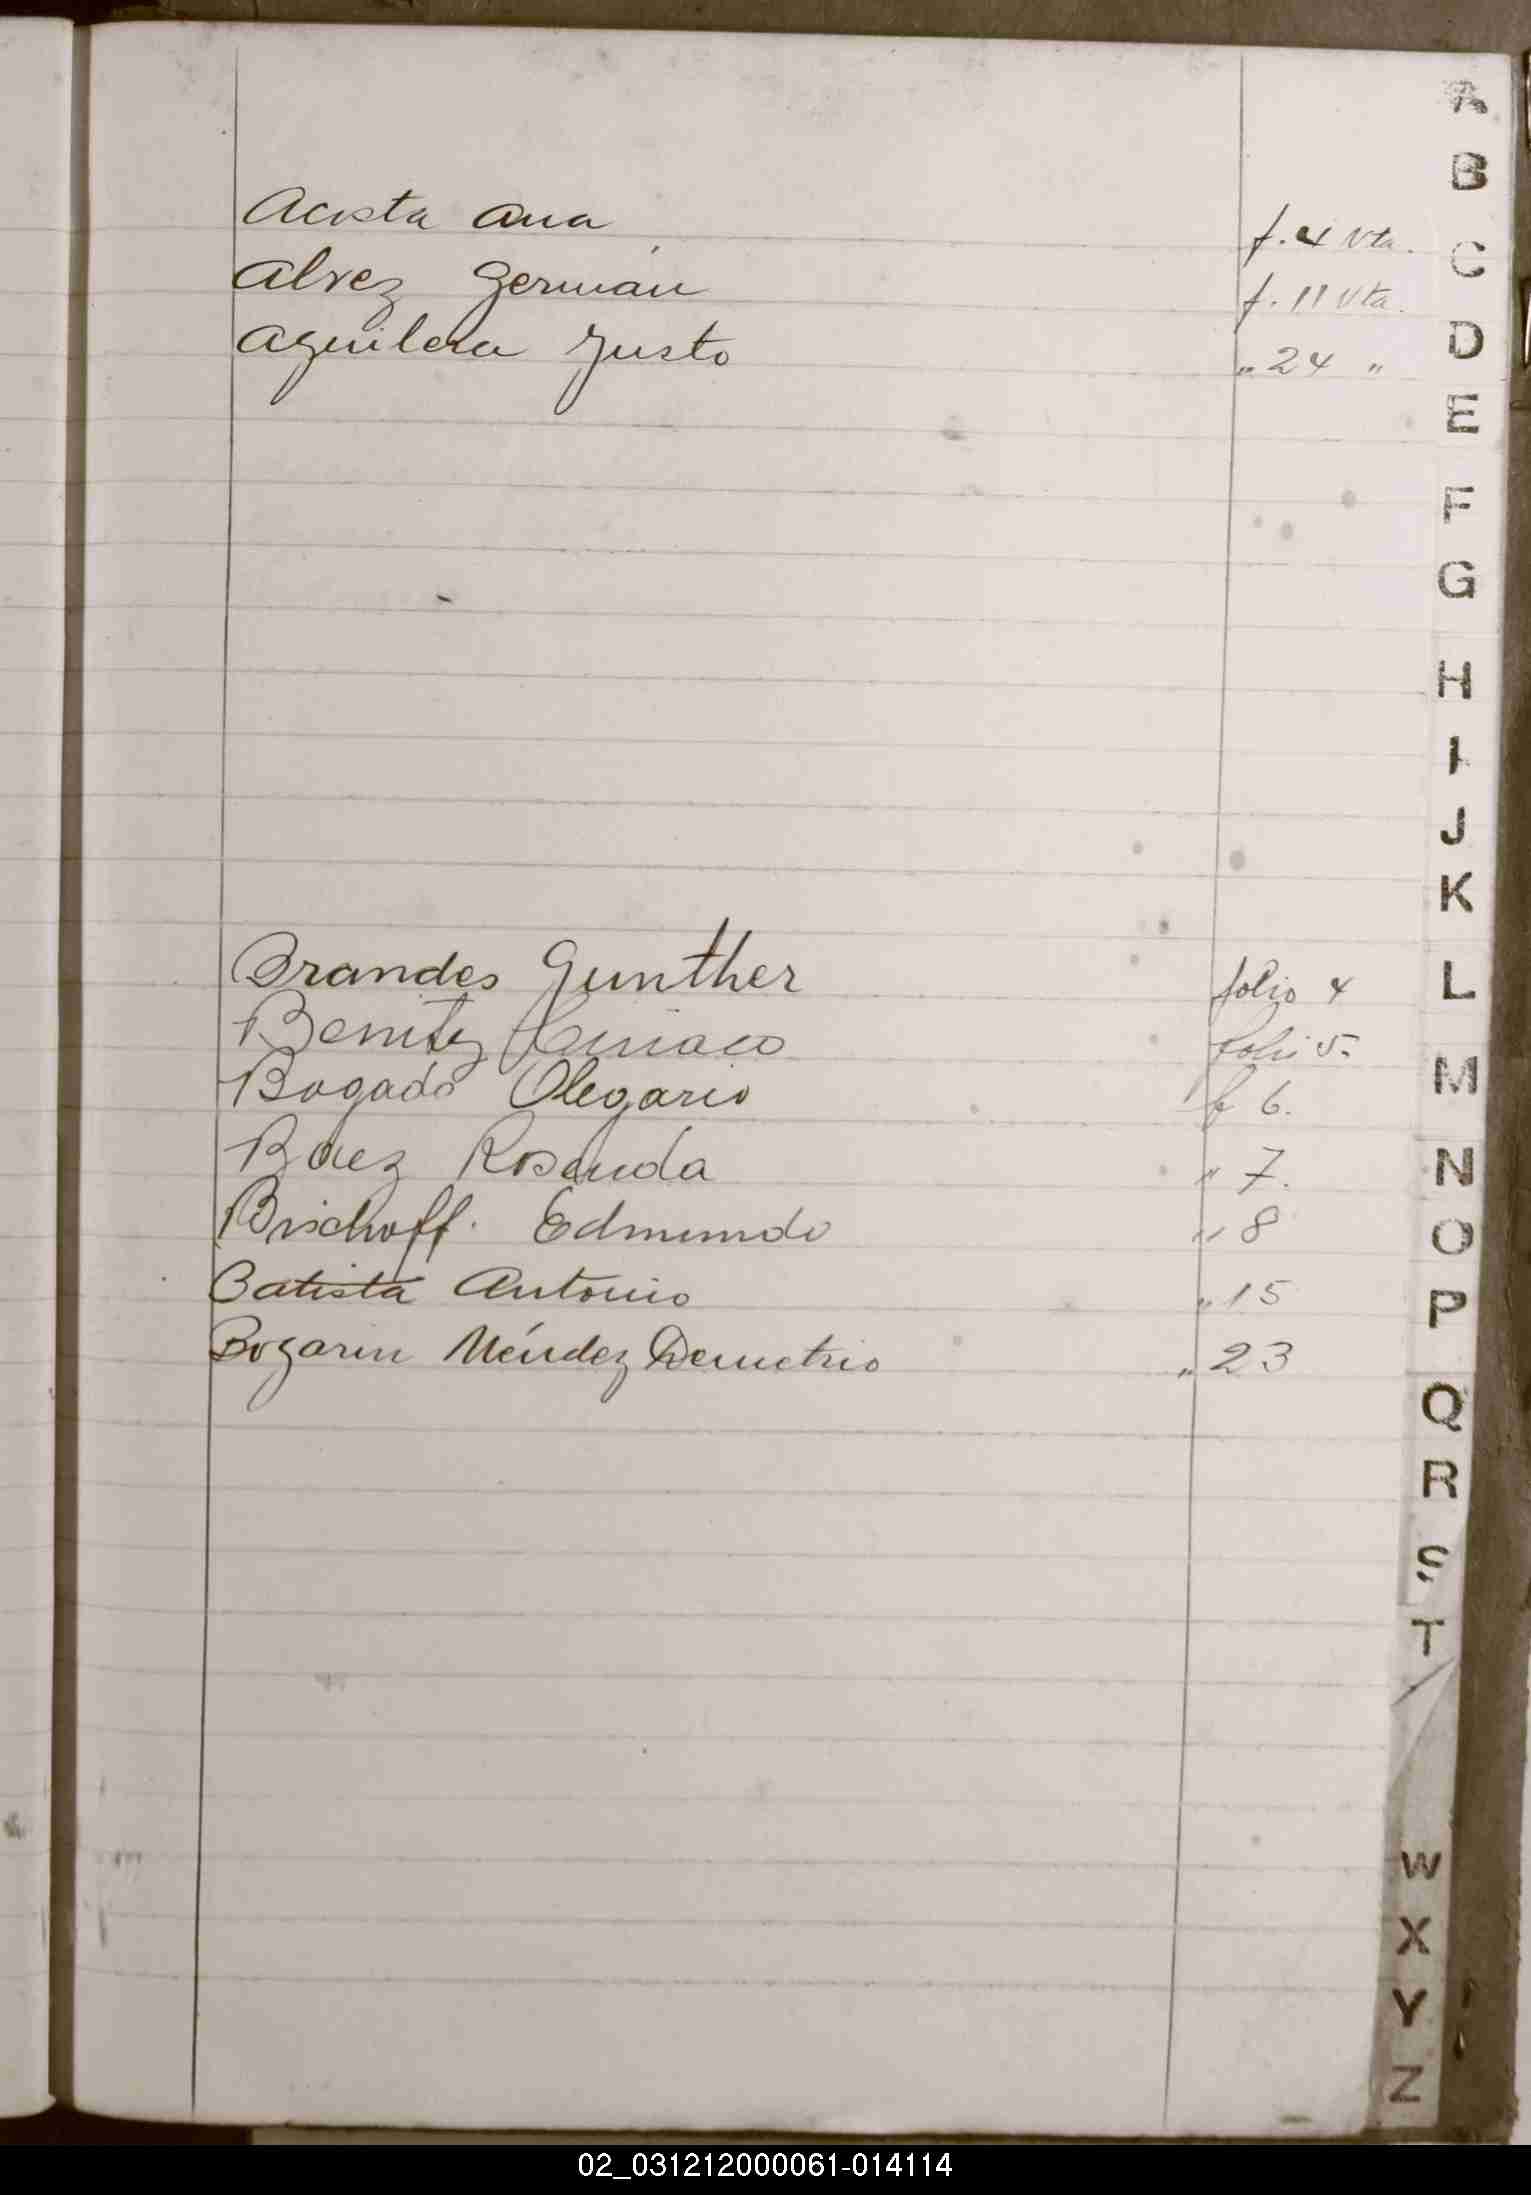 Acosta Ana f. 4 vta.
Alvez Germán f. 11 vta.
Aguilera Justo " 24 "
Brandes Gunther folio 4
Benitez Ciriaco folio 5.
Bogado Olegario f 6.
Baez Rosenda " 7.
Bischoff. Edmundo " 8
Batista Antonio " 15
Bogarin Méndez Demetrio " 23
A
B
C
D
E
F
G
H
I
J
K
L
M
N
O
P
Q
R
S
T
W
X
Y
Z
02_031212000061-014114